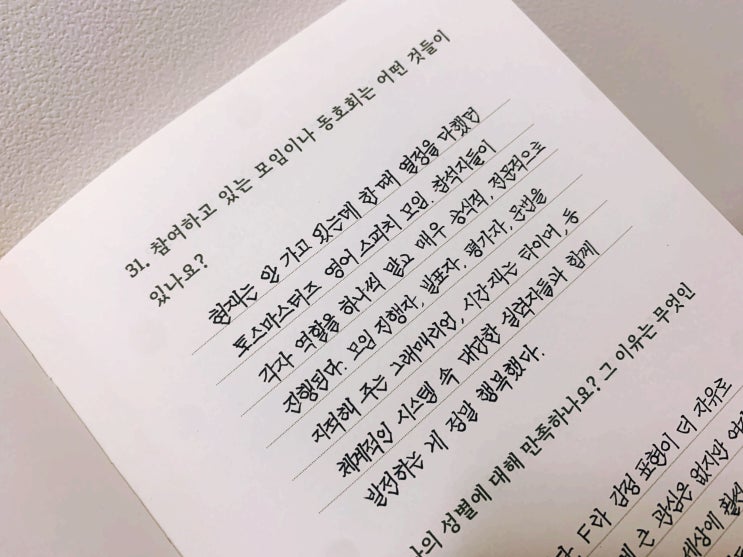 31. 참여하고 있는 모임이나 동호회는 어떤 것들이
있나요?
현재는 안 가고 있는데 한 때 열정을 다했던
토스마스터즈 영어 스피치 모임. 참석자들이
각자 역할을 하나씩 맡고 매우 공식적, 전문적으로
진행된다. 모임 진행자, 발표자, 평가자, 문법을
지적해 주는 그래매리언, 시간 재는 타이머, 등
체계적인 시스템 속 대단한 실력자들과 함께
발전하는 게 정말 행복했다.
의 성별에 대해 만족하나요? 그 이유는 무엇인
F라 감정 표현이 더 자유로
큰 관심은 없지만
세상에